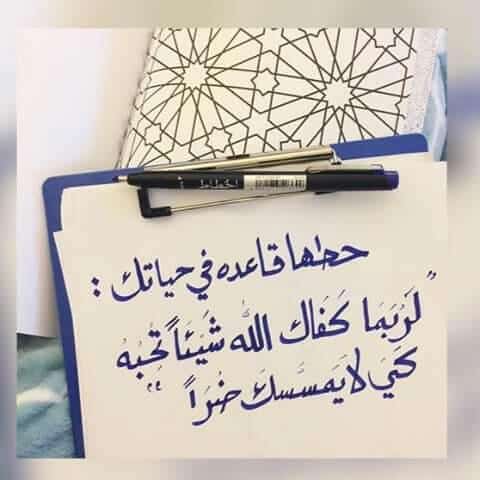 الخطاط
حطها قاعده في حياتك :
" لَرُبَمَا كَفَاك اللّٰه شَيَئاً تُحَبُهُ
كَيَ لا يَمسَسكَ ضُرَاً "